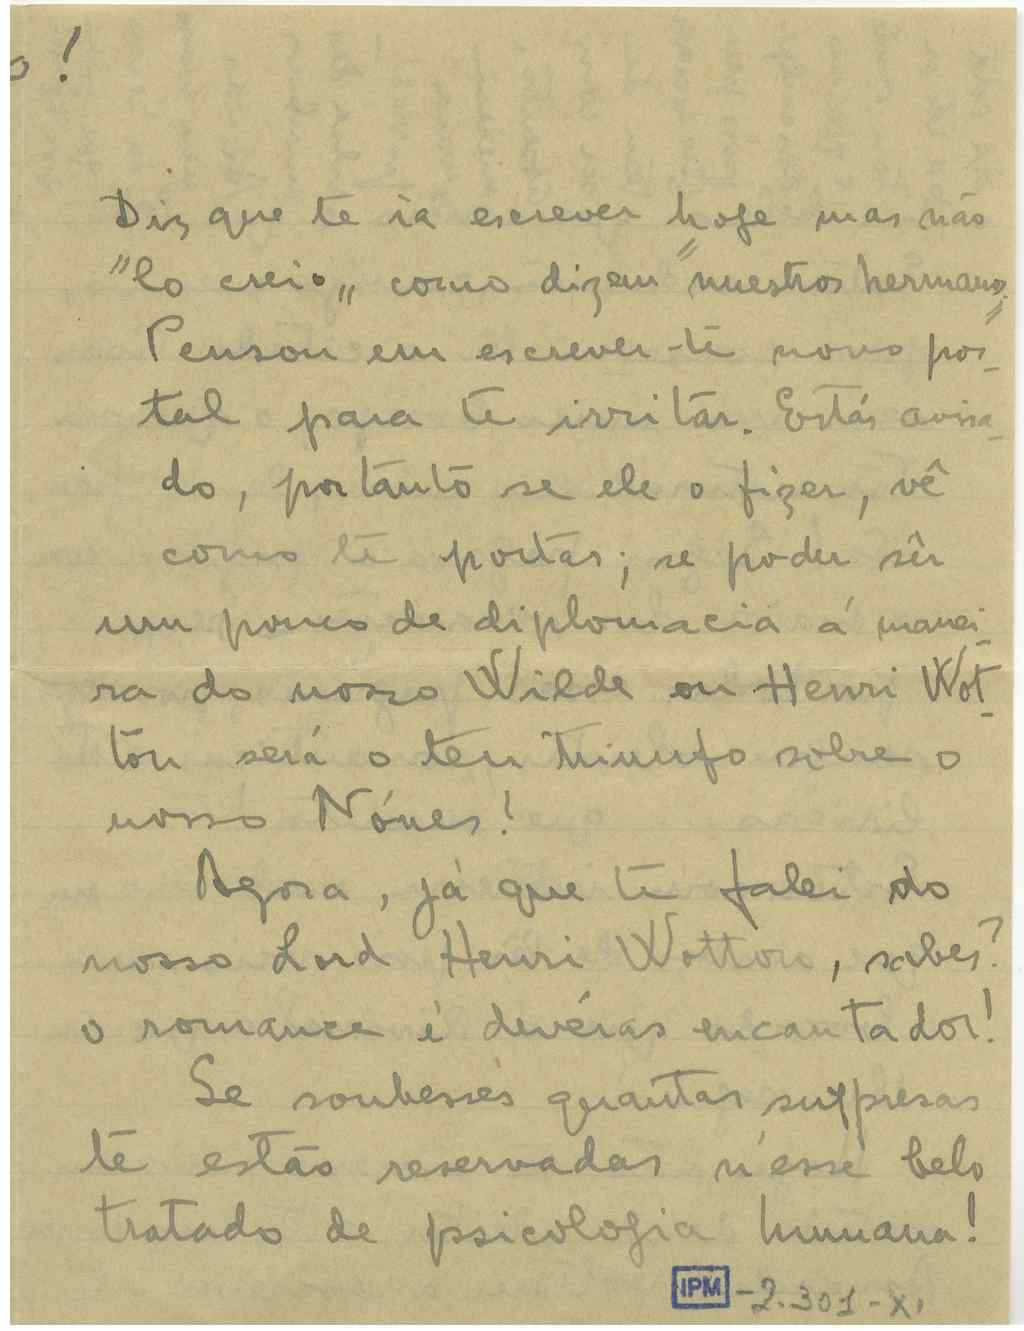 o!
Diz que te ia escrever hoje mas não
"lo creio" como dizem "nuestros hermanos"
Pensou em escrever-te novo pos-
tal para te irritar. Estás avisa-
do, portanto se ele o fizer, vê
como te portas; se poder sêr
um pouco de diplomacia á manei-
ra do nosso Wilde ou Henri Wot-
ton será o teu triunfo sobre o
nosso Nónes!
Agora, já que te falei do
nosso Lord Henri Wotton, sabes?
o romance é devéras encantador!
Se soubesses quantas surpresas
te estão reservadas n'esse belo
tratado de psicologia humana!
IPM -2.301-X,